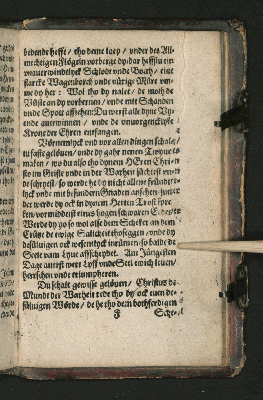 bedende heffe / tho deme loep / vnder des All-
mechtigen Flögeln vorberge dy / dar heffstu eine
vnauerwindtlyck Schlodt vnde Borch / eine
starcke Wagenborch vnde vürige Müre vm-
me dy her: Wol tho dy nalet / de moth de
Näse an dy vorbernen / vnde mit Schanden
vnde Spott afftehen: Du werst alle dyne Vy-
ende auerwinnen / vnde de vnuorgencklyke
Krone der Ehren entfangen.
Vörnemlyck vnd vor allen dingen schale
tu faste gelöuen / vnd dy gahr nenen Twyuel
maken / wo du also tho dynem HEren Christo
sio im Geiste vnde in der Warheit
de schryest / so werde he dy nicht allene fründt-
lyck vnde mit
der werde dy ock in dynem Herten Trost spre-
ken / vormiddelst eines hogen schwaren Eedes:
Werde dy yo so wol alse dem Scheker an dem
Crütze de ewige Salicheit thoseggen / vnde dy
desüluigen ock wesentlyck inrümen / so balde de
Seele vam Lyue affscheydet. Am Jüngesten
Dage auerst wert Lyff vnde Seel ewich leuen /
herrschen vnde triumpheren.
Du schalt gewisse gelöuen / Christus de
Mundt der Warheit rede tho dy ock euen de-
süluigen Wörde / de he tho dem bothferdigen
Sche-